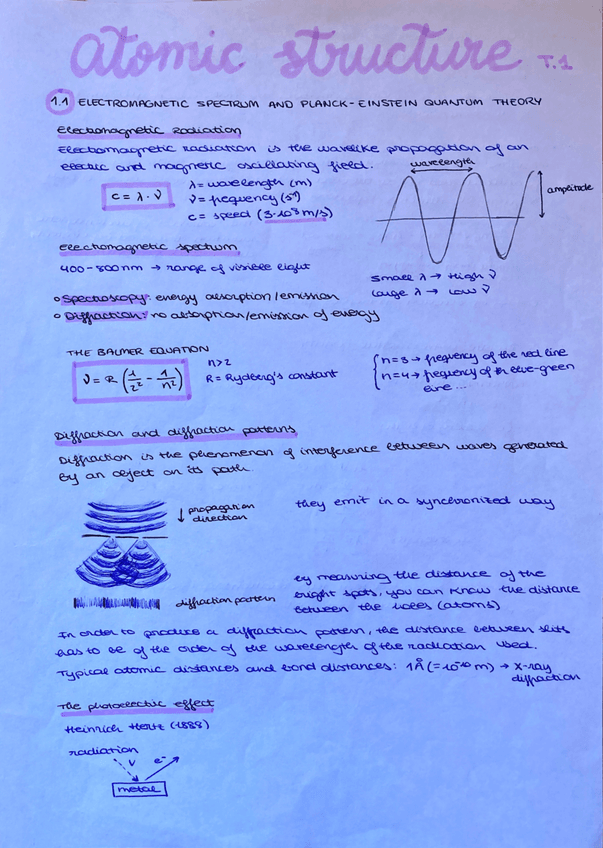 atomic structure T.1
1.1 ELECTROMAGNETIC SPECTRUM AND PLANCK-EINSTEIN QUANTUM THEORY
Electromagnetic Radiation
Electromagnetic radiation is the wavelike propagation of an
electric and magnetic oscillating field.
wavelength
amplitude
c = λ · ν
λ = wavelength (m)
ν = frequency (s⁻¹)
c = speed (3·10⁸ m/s)
Electromagnetic spectrum
400-800 nm → range of visible light
small λ → High ν
large λ → Low ν
○ Spectroscopy: energy absorption/emission
○ Diffraction: no absorption/emission of energy
THE BALMER EQUATION
ν = R (1/2² - 1/n²)
n>2
R = Rydberg's constant
n=3 → frequency of the red line
n=4 → frequency of the blue-green
line ...
Diffraction and diffraction patterns
Diffraction is the phenomenon of interference between waves generated
by an object on its path.
↓ propagation
direction
they emit in a synchronized way
diffraction pattern
by measuring the distance of the
bright spots, you can know the distance
between the holes (atoms)
In order to produce a diffraction pattern, the distance between slits
has to be of the order of the wavelength of the radiation used.
Typical atomic distances and bond distances: 1Å (=10⁻¹⁰ m) → X-ray
diffraction
The photoelectric effect
Heinrich Hertz (1888)
radiation
ν e⁻
metal